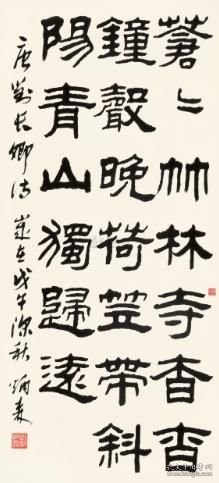 蒼〻竹林寺杳杳
鐘聲晚荷笠帶斜
陽青山獨歸遠
唐劉長卿詩 歲在戊午深秋 炳森